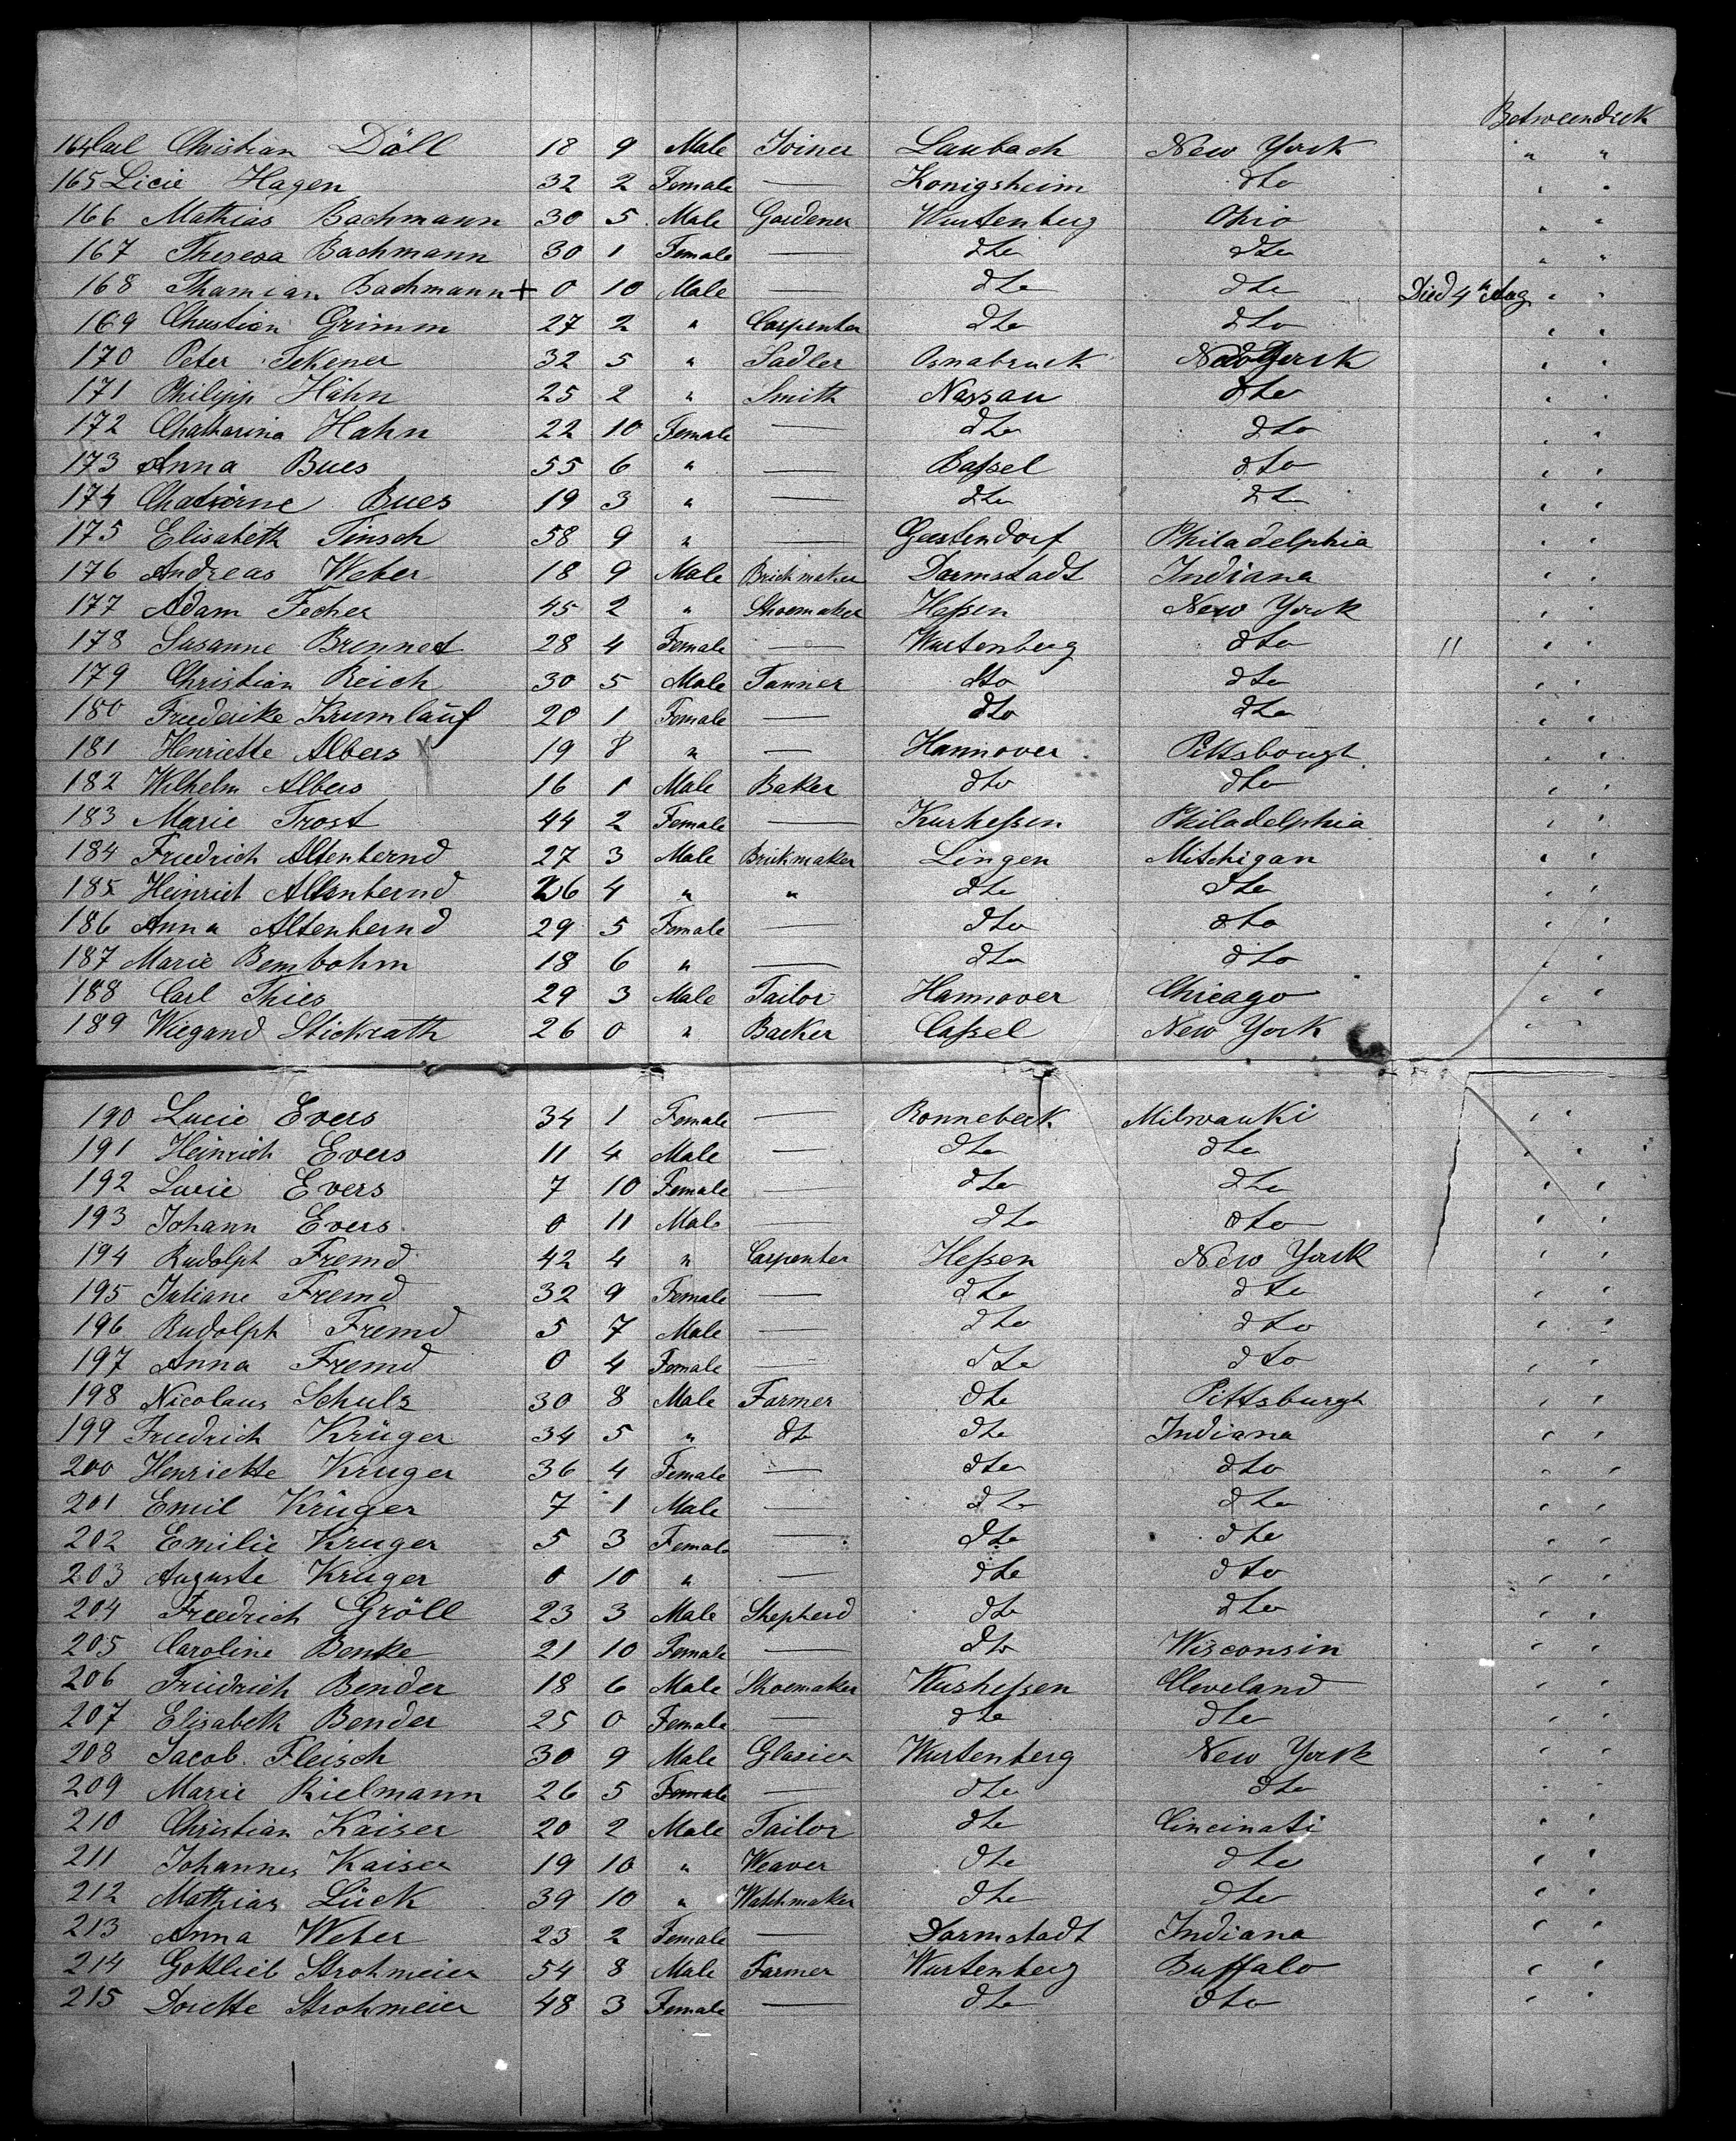 Betweendeck
164 Carl Christian Döll 18 9 Male Joiner Laubach New York " "
165 Licie Hagen 32 2 Female — Konigsheim dto " "
166 Mathias Bachmann 30 5 Male Gardener Wurtenberg Ohio " "
167 Theresa Bachmann 30 1 Female — dto dto " "
168 Thamian Bachmann + 0 10 Male — dto dto Died 4th Aug " "
169 Christian Grimm 27 2 " Carpenter dto dto " "
170 Peter Tekener 32 5 " Sadler Osnabruck New York " "
171 Philipp Hahn 25 2 " Smith Nassau dto " "
172 Chatharina Hahn 22 10 Female — dto dto " "
173 Anna Bues 55 6 " — Cassel dto " "
174 Chatrine Bues 19 3 " — dto dto " "
175 Elisabeth Tinsch 58 9 " — Geestendorf Philadelphia " "
176 Andreas Weber 18 9 Male Brickmaker Darmstadt Indiana " "
177 Adam Fecher 45 2 " Shoemaker Hessen New York " "
178 Susanne Brennet 28 4 Female — Wurtenberg dto " " "
179 Christian Reich 30 5 Male Tanner dto dto " "
180 Friederike Krumlauf 20 1 Female — dto dto " "
181 Henriette Albers X 19 8 " — Hannover Pittsbourgh " "
182 Wilhelm Albers 16 1 Male Baker dto dto " "
183 Marie Trost 44 2 Female — Kurhessen Philadelphia " "
184 Friedrich Altenbernd 27 3 Male Brikmaker Lingen Mitchigan " "
185 Heinrich Altenbernd 26 4 " " dto dto " "
186 Anna Altenbernd 29 5 Female — dto dto " "
187 Marie Bembohm 18 6 " — dto dto " "
188 Carl Thies 29 3 Male Tailor Hannover Chicago " "
189 Wiegand Stickrath 26 0 " Backer Cassel New York " "
190 Lucie Evers 34 1 Female — Ronnebeck Milwauki " "
191 Heinrich Evers 11 4 Male — dto dto " "
192 Lucie Evers 7 10 Female — dto dto " "
193 Johann Evers 0 11 Male — dto dto " "
194 Rudolph Fremd 42 4 " Carpenter Hessen New York " "
195 Juliane Fremd 32 9 Female — dto dto " "
196 Rudolph Fremd 5 7 Male — dto dto " "
197 Anna Fremd 0 4 Female — dto dto " "
198 Nicolaus Schulz 30 8 Male Farmer dto Pittsburgh " "
199 Friedrich Krüger 34 5 " dto dto Indiana " "
200 Henriette Kruger 36 4 Female — dto dto " "
201 Emil Krüger 7 1 Male — dto dto " "
202 Emilie Kruger 5 3 Female — dto dto " "
203 Auguste Kruger 0 10 " — dto dto " "
204 Friedrich Gröll 23 3 Male Shepherd dto dto " "
205 Caroline Benke 21 10 Female — dto Wisconsin " "
206 Friedrich Bender 18 6 Male Shoemaker Kurhessen Cleveland " "
207 Elisabeth Bender 25 0 Female — dto dto " "
208 Jacob Fleisch 30 9 Male Glasier Wurtenberg New York " "
209 Marie Rielmann 26 5 Female — dto dto " "
210 Christian Kaiser 20 2 Male Tailor dto Cincinati " "
211 Johannes Kaiser 19 10 " Weaver dto dto " "
212 Mathias Lück 39 10 " Watchmaker dto dto " "
213 Anna Weber 23 2 Female — Darmstadt Indiana " "
214 Gottlieb Strohmeier 54 8 Male Farmer Wurtenberg Buffalo " "
215 Dorette Strohmeier 48 3 Female — dto dto " "